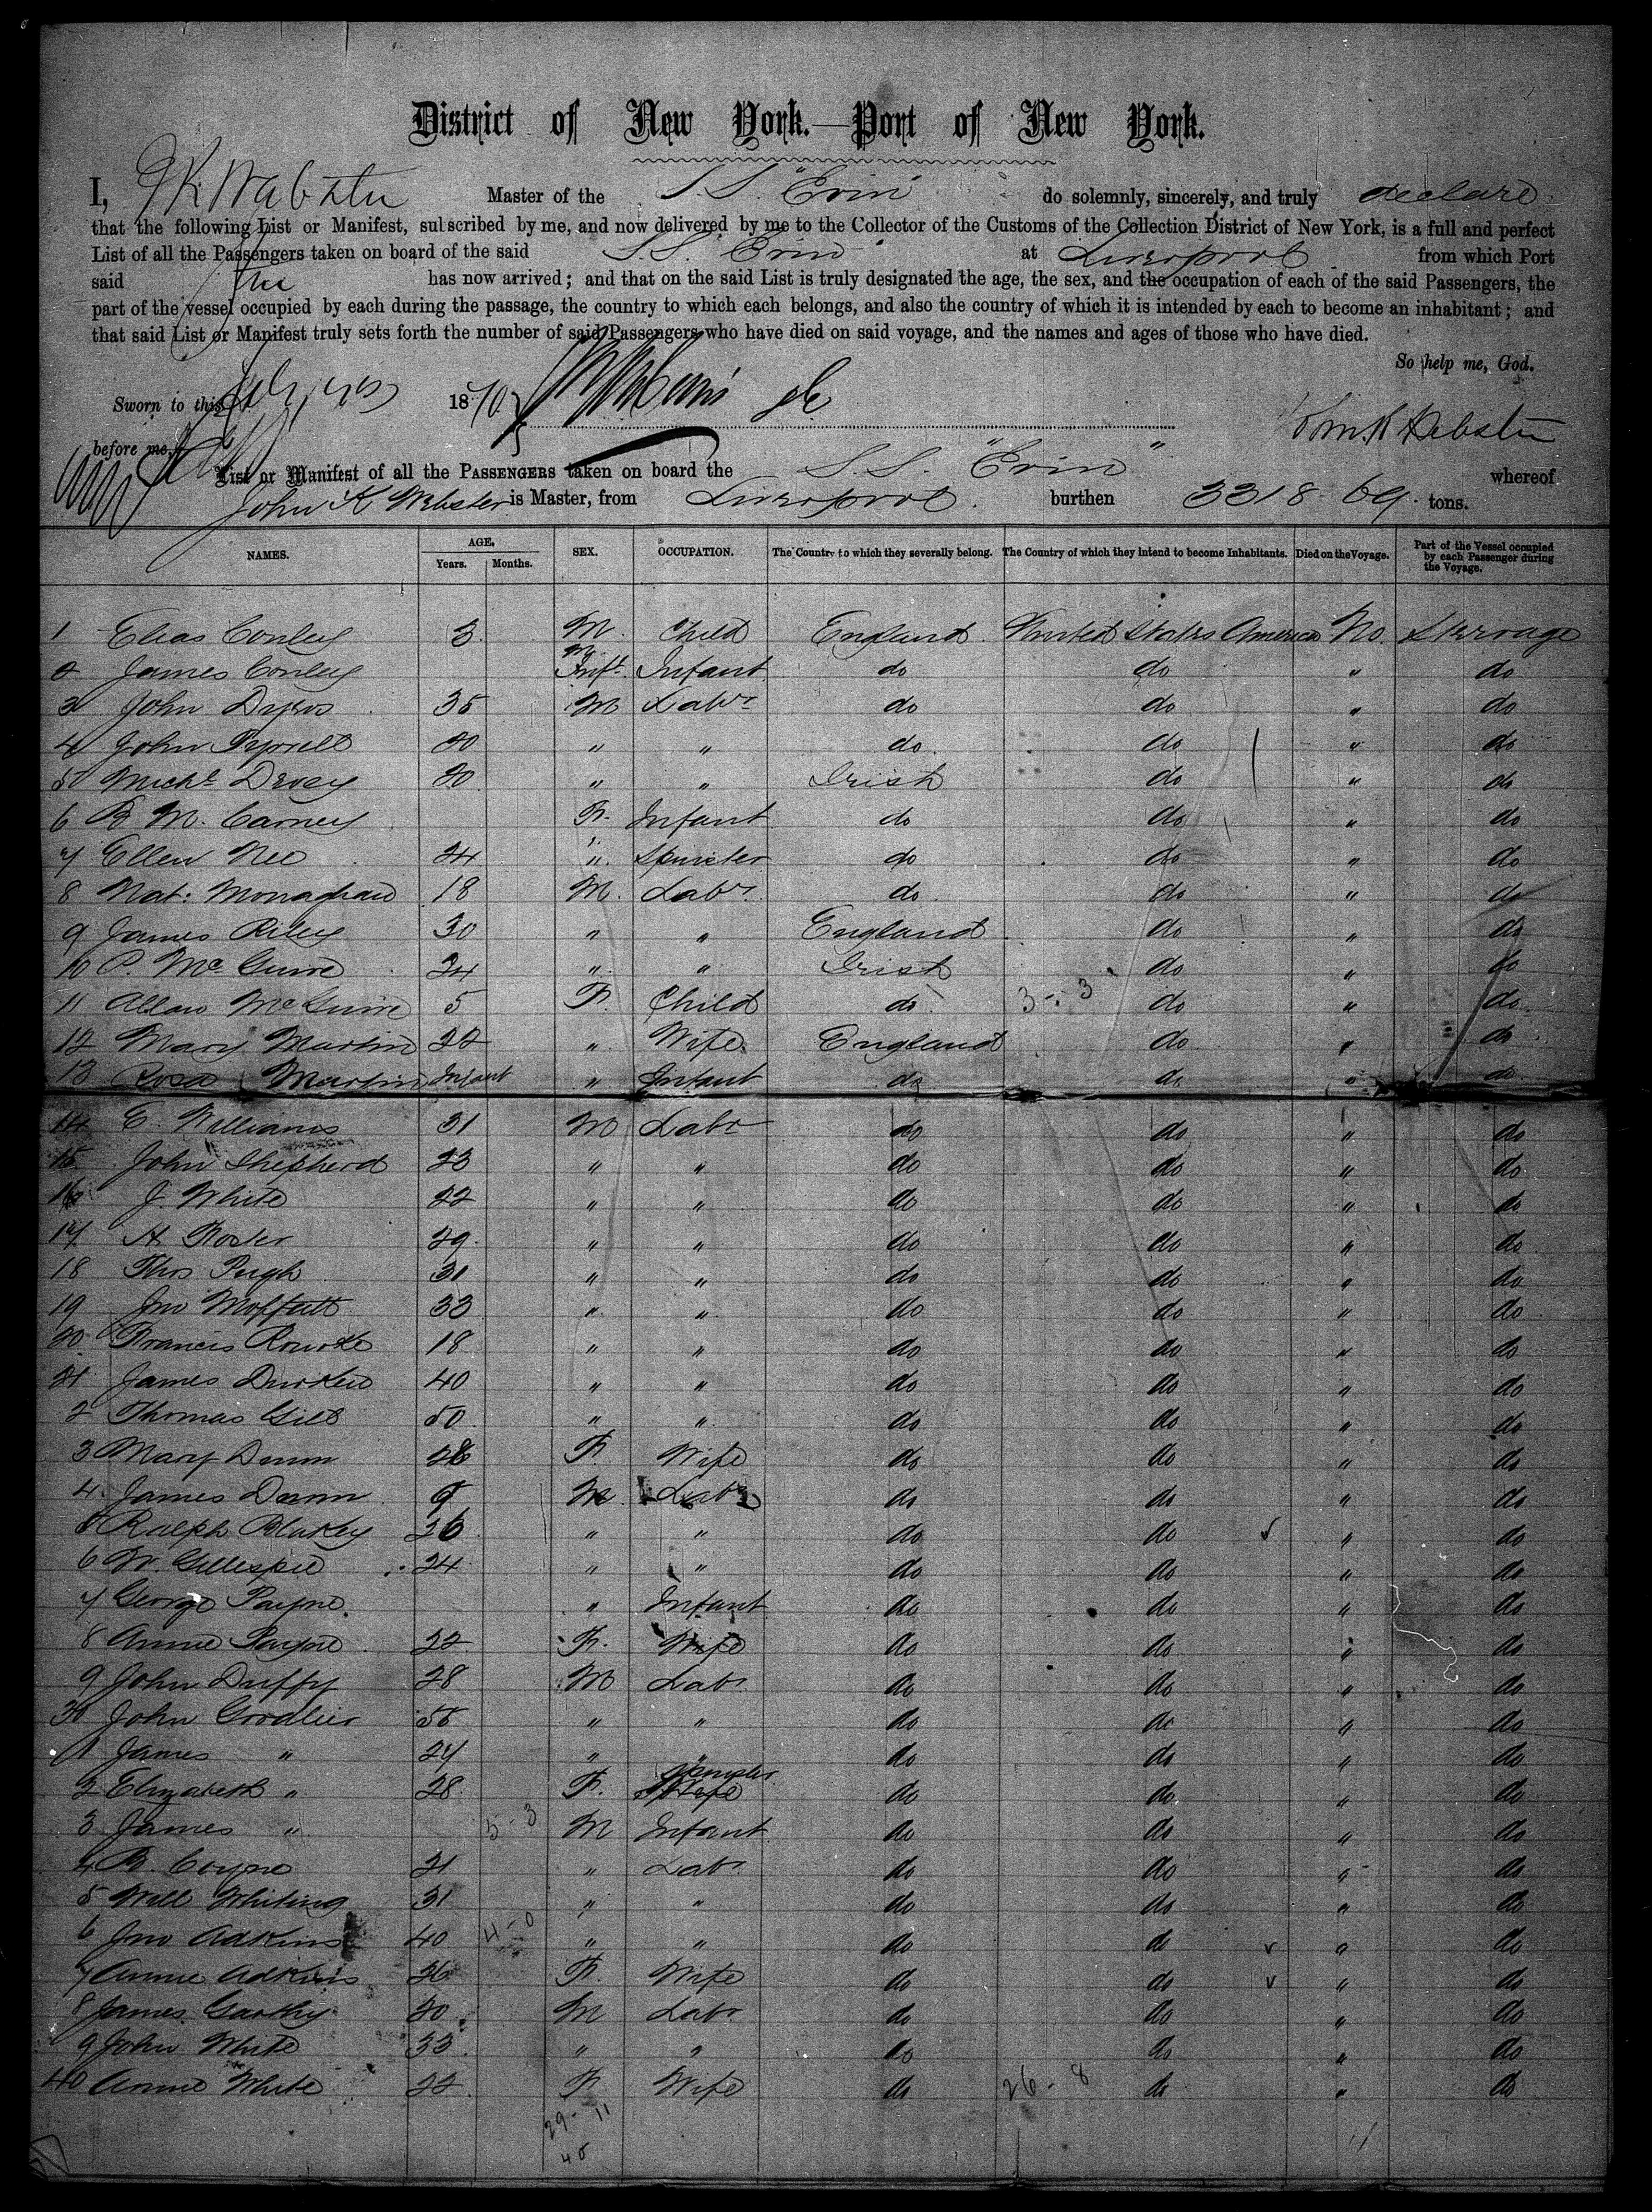 District of New York.—Port of New York.
I, J K Webster Master of the S. S. "Erin" do solemnly, sincerely, and truly declare
that the following List or Manifest, subscribed by me, and now delivered by me to the Collector of the Customs of the Collection District of New York, is a full and perfect
List of all the Passengers taken on board of the said S.S. Erin at Liverpool from which Port
said has now arrived; and that on the said List is truly designated the age, the sex, and the occupation of each of the said Passengers, the
part of the vessel occupied by each during the passage, the country to which each belongs, and also the country of which it is intended by each to become an inhabitant; and
that said List or Manifest truly sets forth the number of said Passengers who have died on said voyage, and the names and ages of those who have died.
So help me, God.
Sworn to this 1870
before me, Webster
List or Manifest of all the PASSENGERS taken on board the S. S. "Erin" whereof
John K Webster is Master, from Liverpool burthen 3318 69 tons.
NAMES. AGE. Years. Months. SEX. OCCUPATION. The Country to which they severally belong. The Country of which they intend to become Inhabitants. Died on the Voyage. Part of the Vessel occupied by each Passenger during the Voyage.
1 Elias Conley 3 M. Child England United States America No Steerage
2 James Conley M. Inft. Infant do do " do
3 John 35 M Labr do do " do
4 John Tyrrell 20 " " do do " do
5 Michl 20 " " Irish do " do
6 B M. Carney F. Infant do do " do
7 Ellen Nee 24 " Spinster do do " do
8 Nat: Monaghan 18 M. Labr do do " do
9 James Riley 30 " " England do " do
10 P. McGuire 24 " " Irish do " do
11 McGuire 5 F. Child do 3-3 do " do
12 Mary Martin 22 " Wife England do " do
13 Rosa Martin Infant " Infant do do " do
14 E. Williams 31 M Labr do do " do
15 John Shepherd 23 " " do do " do
16 J. White 22 " " do do " do
17 A Foster 29 " " do do " do
18 Thos Pugh 31 " " do do " do
19 Jno Moffatt 33 " " do do " do
20 Francis Rourke 18 " " do do " do
21 James Durken 40 " " do do " do
2 Thomas Gill 50 " " do do " do
3 Mary Dunn 28 F. Wife do do " do
4 James Dunn 9 M Labr do do " do
5 Ralph Blakey 26 " " do do " do
6 W. Gillespie 24 " " do do " do
7 George Payne " Infant do do " do
8 Annie Payne 22 F. Wife do do " do
9 John Duffy 28 M Labr do do " do
30 John 55 " " do do " do
1 James " 24 " " do do " do
2 Elizabeth " 28 F. Spinster do do " do
3 James " 5-3 M Infant do do " do
4 B. Coyne 21 " Labr do do " do
5 Will Whiting 31 " " do do " do
6 Jno Adkins 40 4-0 " " do do " do
7 Annie Adkins 36 F. Wife do do " do
8 James 20 M Labr do do " do
9 John White 33 " " do do " do
40 Annie White 22 F Wife do 26-8 do " do
29-11
40